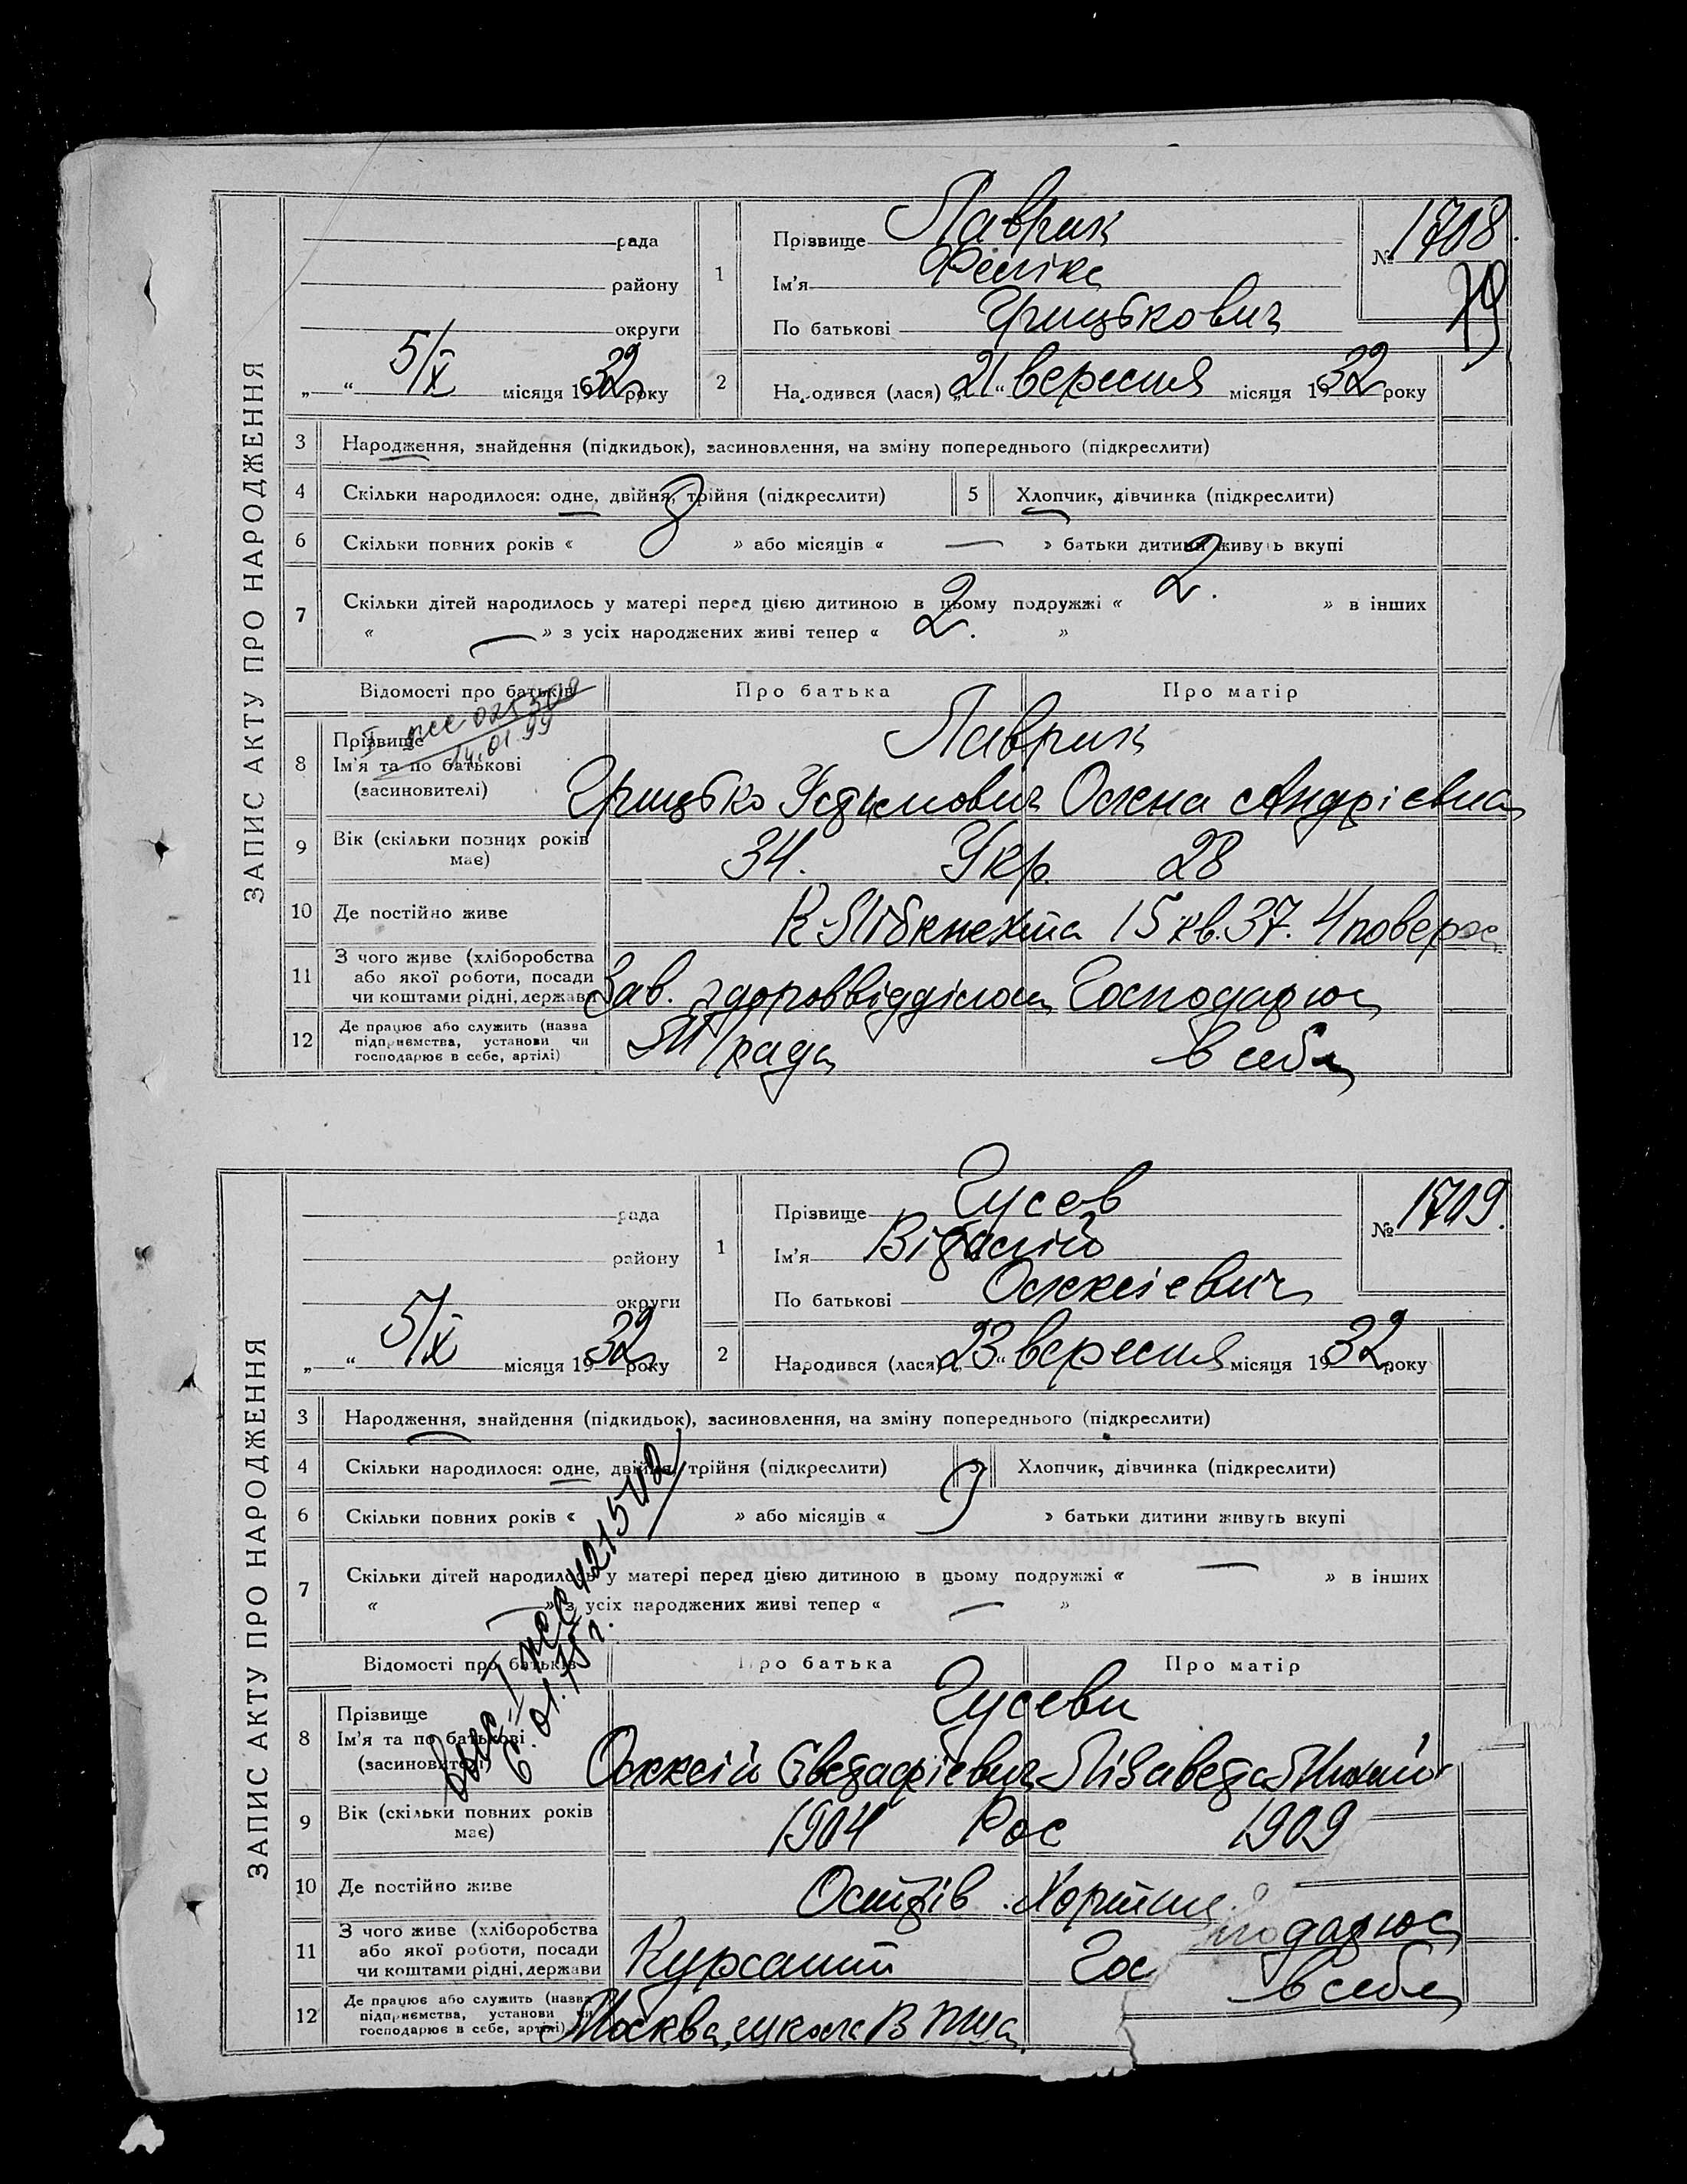 ЗАПИС АКТУ ПРО НАРОДЖЕННЯ
рада
району
округи
„ “ 5/X місяця 1932 року
1
Прізвище Лаврик
Ім'я Фелікс
По батькові Грицькович
№ 1708.
79
2 Народився (лася) „21“ вересня місяця 1932 року
3 Народження, знайдення (підкидьок), засиновлення, на зміну попереднього (підкреслити)
4 Скільки народилося: одне, двійня, трійня (підкреслити) 5 Хлопчик, дівчинка (підкреслити)
6 Скільки повних років « 8 » або місяців « — » батьки дитини живуть вкупі
7 Скільки дітей народилось у матері перед цією дитиною в цьому подружжі « 2. » в інших
« — » з усіх народжених живі тепер « 2. »
Відомості про батьків Про батька Про матір
14.01.99
8 Прізвище Лаврик
Ім'я та по батькові Грицько Устимович Олена Андріевна
(засиновителі)
9 Вік (скільки повних років має) 34. Укр. 28
10 Де постійно живе К-Лібкнехта 15 кв. 37. 4 поверх
11 З чого живе (хліборобства або якої роботи, посади чи коштами рідні, держави Зав. здороввідділом Господарює
12 Де працює або служить (назва підприємства, установи чи господарює в себе, артілі) М/рада в себе
ЗАПИС АКТУ ПРО НАРОДЖЕННЯ
рада
району
округи
„ “ 5/X місяця 1932 року
1
Прізвище Гусев
Ім'я Віталій
По батькові Олексієвич
№ 1709.
2 Народився (лася) „23“ вересня місяця 1932 року
3 Народження, знайдення (підкидьок), засиновлення, на зміну попереднього (підкреслити)
4 Скільки народилося: одне, двійня, трійня (підкреслити) 5 Хлопчик, дівчинка (підкреслити)
6 Скільки повних років « » або місяців « 9 » батьки дитини живуть вкупі
7 Скільки дітей народилось у матері перед цією дитиною в цьому подружжі « — » в інших
« — » з усіх народжених живі тепер « — »
Відомості про батьків Про батька Про матір
6.01.75 г.
8 Прізвище Гусеви
Ім'я та по батькові Олексій Лізавета
(засиновителі)
9 Вік (скільки повних років має) 1904 Рос 1909
10 Де постійно живе Острів Хортиця
11 З чого живе (хліборобства або якої роботи, посади чи коштами рідні, держави Курсант Господарює
в себе
12 Де працює або служить (назва підприємства, установи чи господарює в себе, артілі) Москва, школа